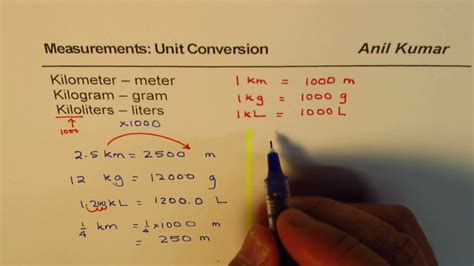 Measurements: Unit Conversion Anil Kumar
Kilometer – meter
Kilogram – gram
Kiloliters – liters
1000
x1000
1 km = 1000 m
1 kg = 1000 g
1 kL = 1000 L
2.5 km = 2500 m
12 kg = 12000 g
1.200 kL = 1200.0 L
1/4 km = 1/4 x 1000 m
= 250 m